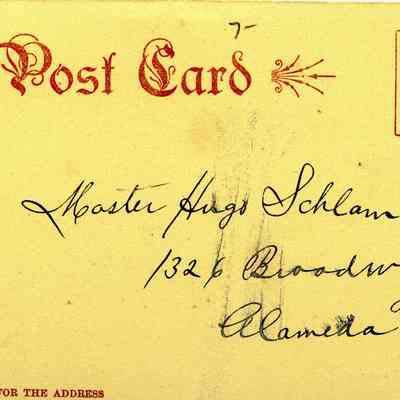 7-
Post Card
Master Hugo Schlam
1326 Broadw
Alameda
FOR THE ADDRESS